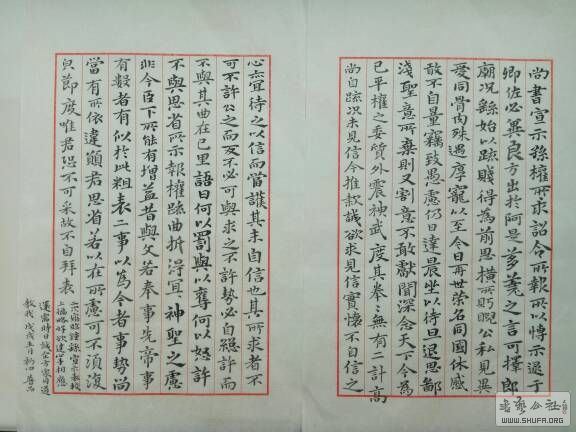 尚書宣示孫權所求詔令所報所以博示逮于
卿佐必冀良方出於阿是芻蕘之言可擇郎
廟況繇始以疏賤得為前恩橫所盻睨公私見異
愛同骨肉殊遇厚寵以至今日再世榮名同國休慼
敢不自量竊致愚慮仍日達晨坐以待旦退思鄙
淺聖意所棄則又割意不敢獻聞深念天下今為
已平權之委質外震神武度其拳々無有二計高
尚自疏況未見信今推款誠欲求見信實懷不自信之
心亦宜待之以信而當護其未自信也其所求者不
可不許々之而反不必可與求之不許勢必自絕許而
不與其曲在已里語曰何以罰與以奪何以怒許
不與思省所示報權疏曲折得宜神聖之慮
非今臣下所能有增益昔與文若奉事先帝事
有數者有似於此粗表二事以為今者事勢尚
當有所依違願君思省若以在所慮可不須復
貞節度唯君恐不可采故不自拜表
教我戊戌五月初四
書法公社
WWW.SHUFA.ORG